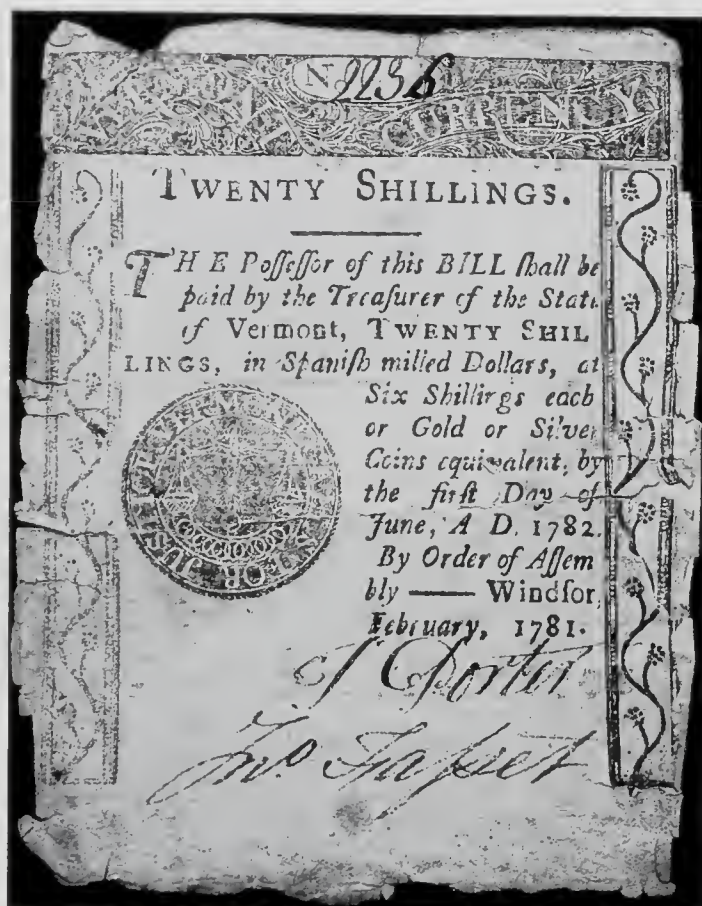 N 2236
VERMONT CURRENCY.
TWENTY SHILLINGS.
THE Poſſeſſor of this BILL ſhall be
paid by the Treaſurer of the State
of Vermont, TWENTY SHIL
LINGS, in Spaniſh milled Dollars, at
Six Shillings each
or Gold or Silver
Coins equivalent, by
the firſt Day of
June, A D. 1782.
By Order of Aſſem
bly —— Windſor,
February, 1781.
T Porter
Jnº Faſset